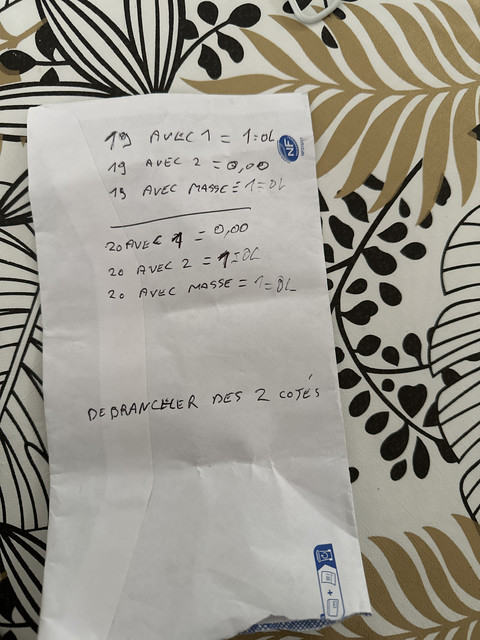 19 AVEC 1 = 1=OL
19 AVEC 2 = 0,00
19 AVEC MASSE = 1=OL
20 AVEC 1 = 0,00
20 AVEC 2 = 1=OL
20 AVEC MASSE = 1=OL
DEBRANCHER DES 2 COTÉS
NF